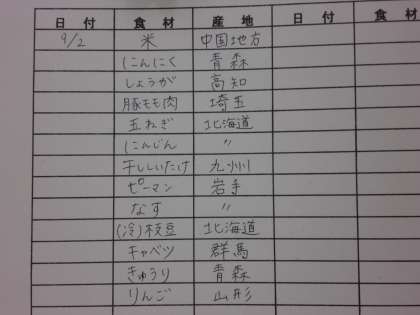 日付 食材 産地 日付 食材
9/2 米 中国地方
にんにく 青森
しょうが 高知
豚もも肉 埼玉
玉ねぎ 北海道
にんじん 〃
干ししいたけ 九州
ピーマン 岩手
なす 〃
(冷)枝豆 北海道
キャベツ 群馬
きゅうり 青森
りんご 山形